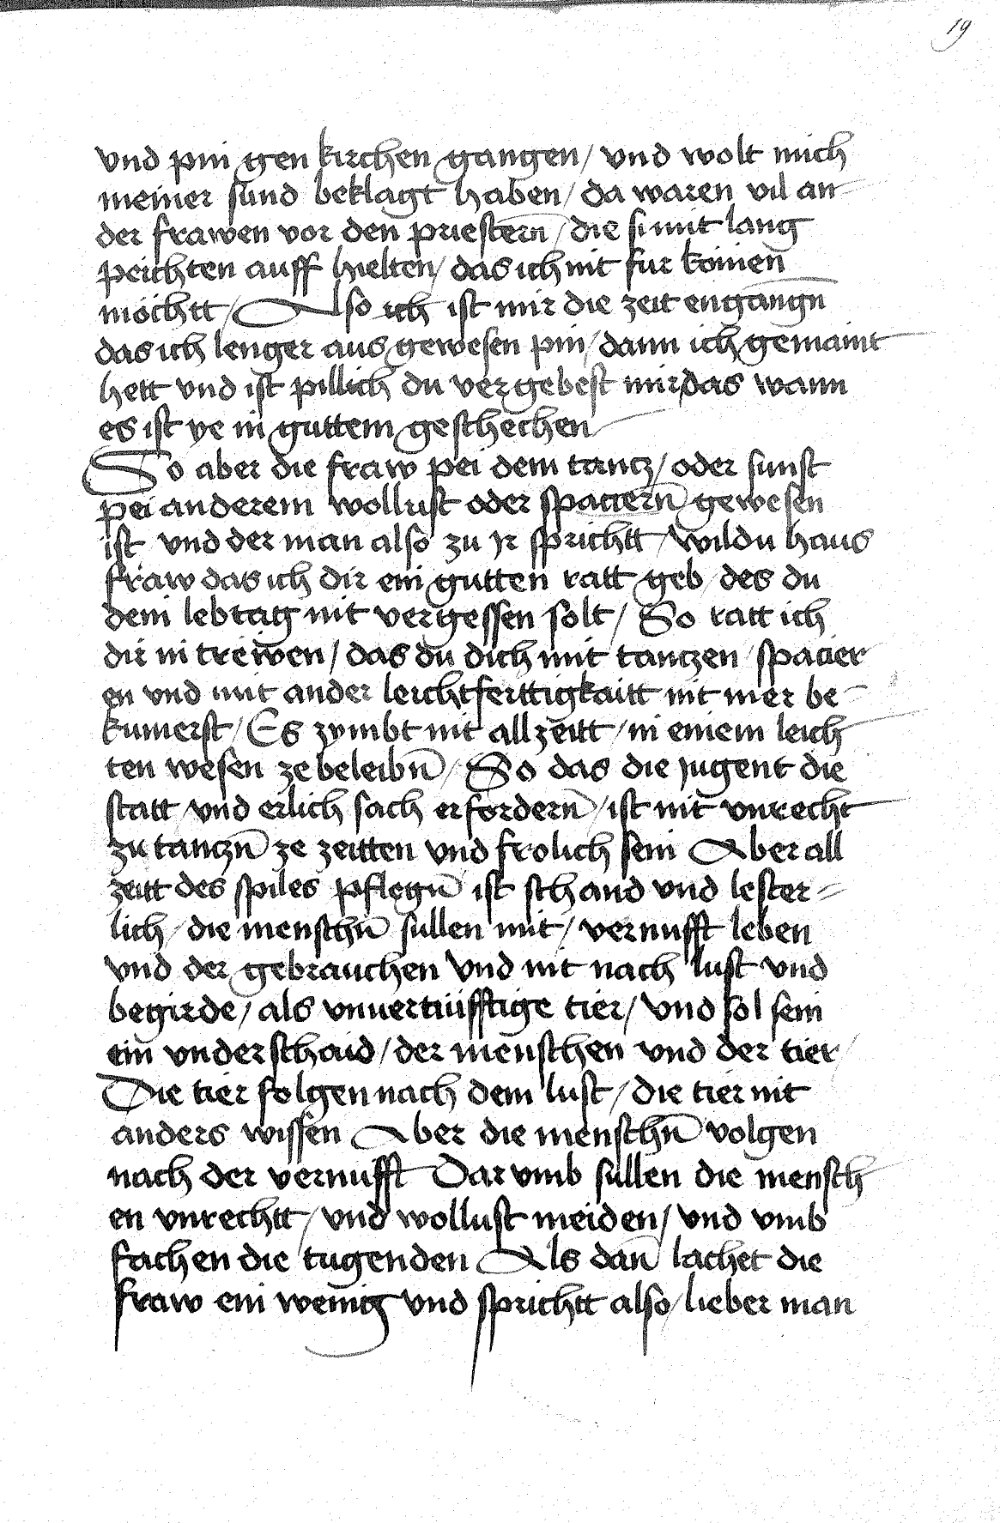 19
vnd pin gen kirchen gangen / vnd wolt mich
meiner sund beklagt haben / da waren vil an
der frawen vor den priestern / die si mit lang
peichten auff hielten / das ich nit fur komen
mochtt / Also ich ist mir die zeit engangn̄
das ich lenger aus gewesen pin / dann ich gemaint
hett vnd ist pillich du vergebest mir das wann
es ist ye in guttem geschechen
So aber die fraw pei dem tancz / oder sunst
pei anderem wollust oder spaciern̄ gewesen
ist vnd der man also zu yr sprichtt / wildu haus
fraw das ich dir ein gutten ratt geb / des du
dein lebtag nit vergessen solt / So ratt ich
dir in trewen / das du dich mit tanczen / spacier
en vnd mit ander leichtferttigkaitt nit mer be-
kumerst / Es zymbt nit allzeitt / in einem leich
ten wesen ze beleibn̄ / So das die jugent die
statt / vnd erlich sach erfordern̄ / ist nit vnrecht
zu tanczn̄ ze zeitten vnd frolich sein Aber all
zeitt des spiles pflegn̄ ist schand vnd lester=
lich / die menschn̄ sullen mit / vernufft leben
vnd der gebrauchen vnd nit nach lust vnd
begirde / als vnuernufftige tier / vnd sol sein
ein vnderschaid / der menschen vnd der tier /
Die tier folgen nach dem lust / die tier nit
anders wissen Aber die menschn̄ volgen
nach der vernufft Dar vmb sullen die mensch
en vnrechtt / vnd wollust meiden / vnd vmb
fachen die tugenden Als dan̄ lachet die
fraw ein wenig vnd sprichtt also / lieber man